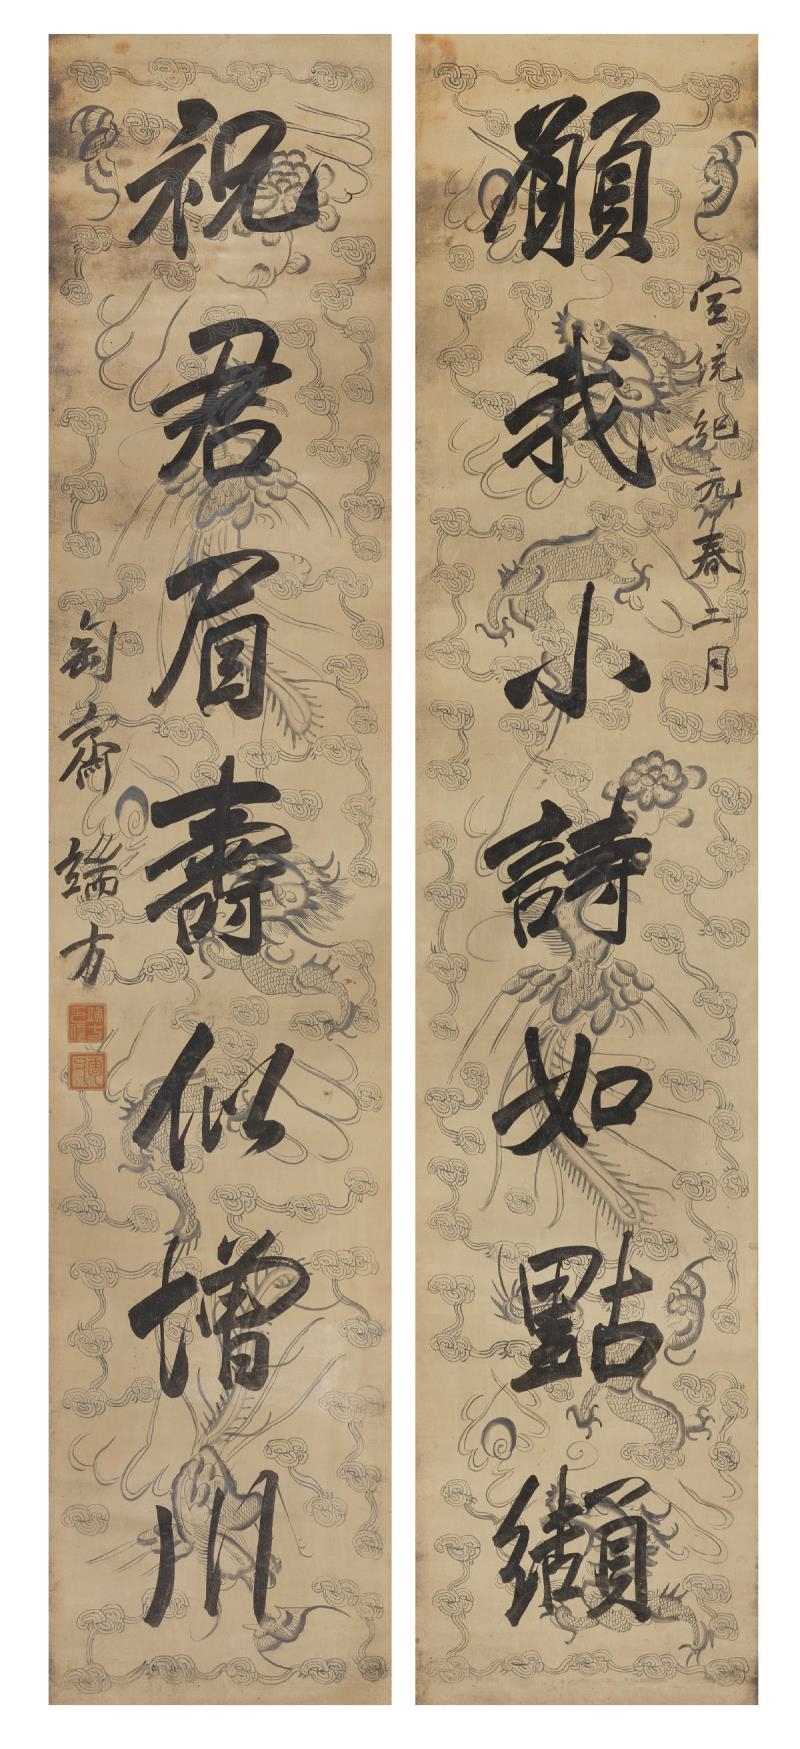 宣統紀元春二月
願我小詩如點纈
祝君眉壽似增川
匋齋端方